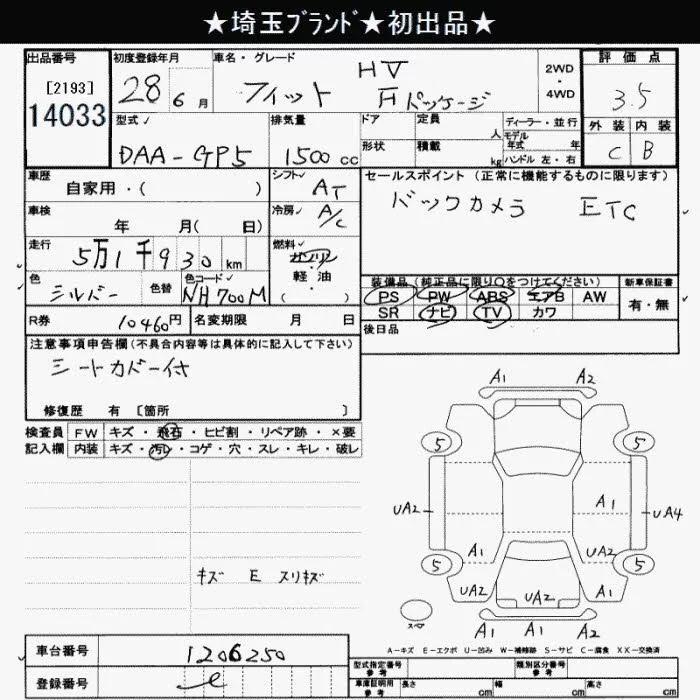 ★埼玉ﾌﾞﾗﾝﾄﾞ★初出品★
出品番号
[2193]
14033
初度登録年月
28 6 月
車名・グレード
フィット HV
Fパッケージ
2WD
・
4WD
評価点
3.5
外装 内装
C B
型式
DAA-GP5
排気量
1500 cc
ドア
形状
定員 人
積載 kg
ディーラー・並行
モデル年式 年
ハンドル 左・右
車歴
自家用・( )
シフト
AT
セールスポイント(正常に機能するものに限ります)
バックカメラ ETC
車検
年 月( 日)
冷房
A/C
走行
5万1千930 km
燃料
ガソリン
軽・油
( )
色
シルバー
色替
色コード
NH700M
装備品(純正品に限り○をつけてください)
PS PW ABS エアB AW
SR ナビ TV カワ
新車保証書
有・無
R券
10460円
名変期限 月 日
後日品
注意事項申告欄(不具合内容等は具体的に記入して下さい)
シートカバー付
修復歴 有 [箇所 ]
検査員
記入欄
FW キズ・飛石・ヒビ割・リペア跡・×要
内装 キズ・汚レ・コゲ・穴・スレ・キレ・破レ
キズ E スリキズ
A1 A2
5 5
UA2 A1 UA4
A1 UA2
5 5
UA2 UA2 A1
A1 A1 A2
スペア
A-キズ E-エクボ U-凹み W-補修跡 S-サビ C-腐食 XX-交換済
車台番号
1206250
登録番号
e
型式指定番号
参考
類別区分番号
参考
車庫証明用
参考
長さ cm 幅 cm 高さ cm